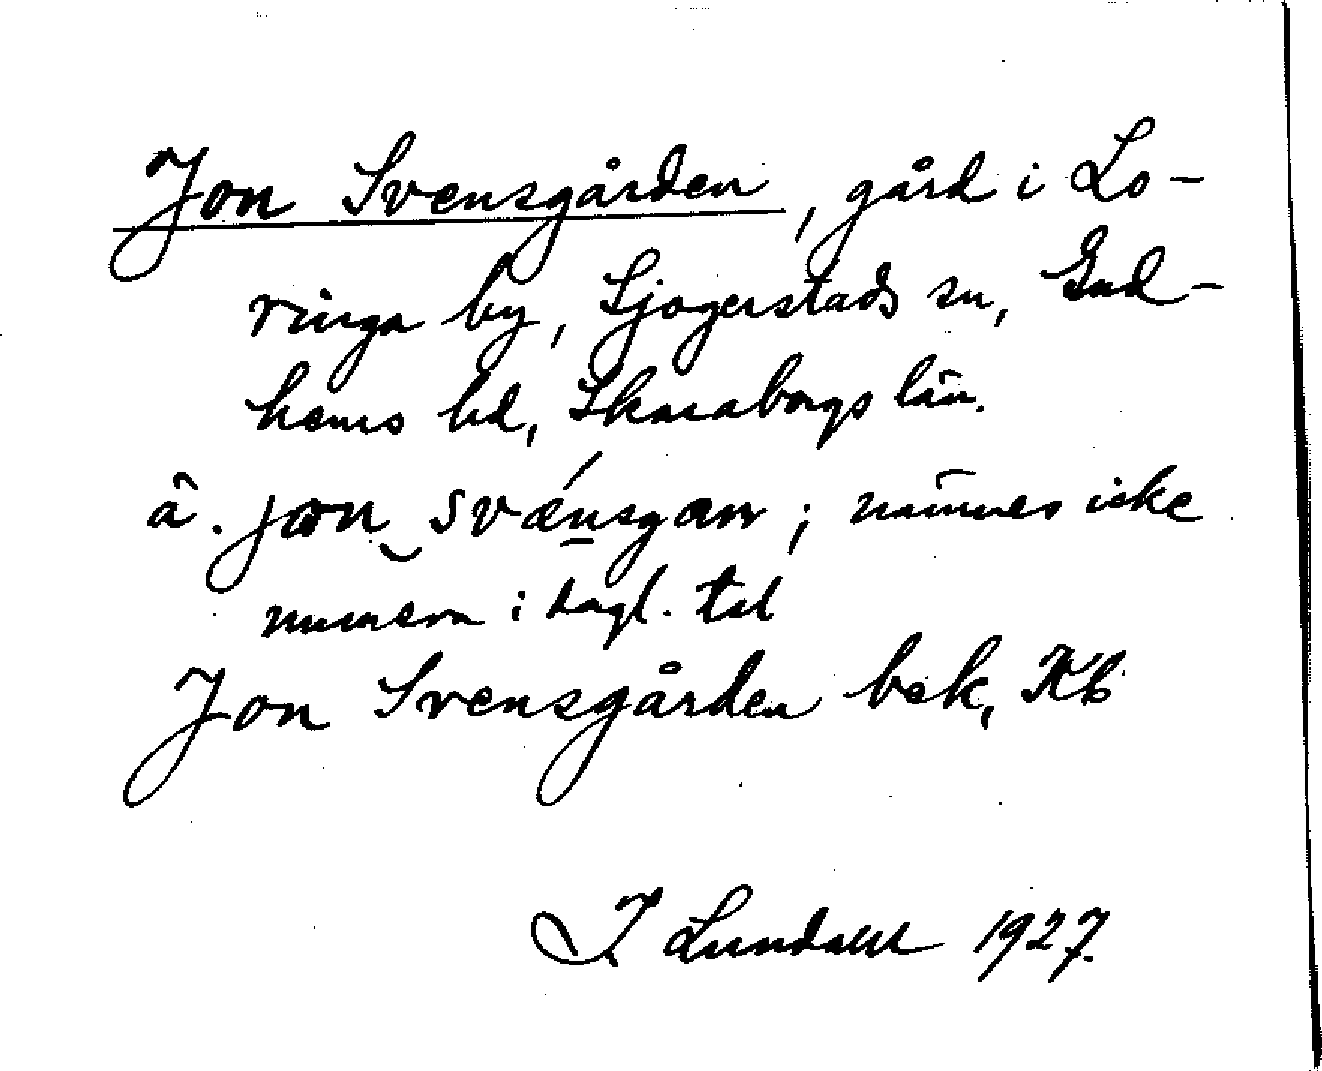 Jon Svensgården, gård i Lo-
ringa by, Sjogerstads sn, Gud-
hems hd, Skaraborgs län.
å. jon svǽnsgarn; nämnes icke
numera i dagl. tal
Jon Svensgården bek, Kb
I Lundahl 1927.